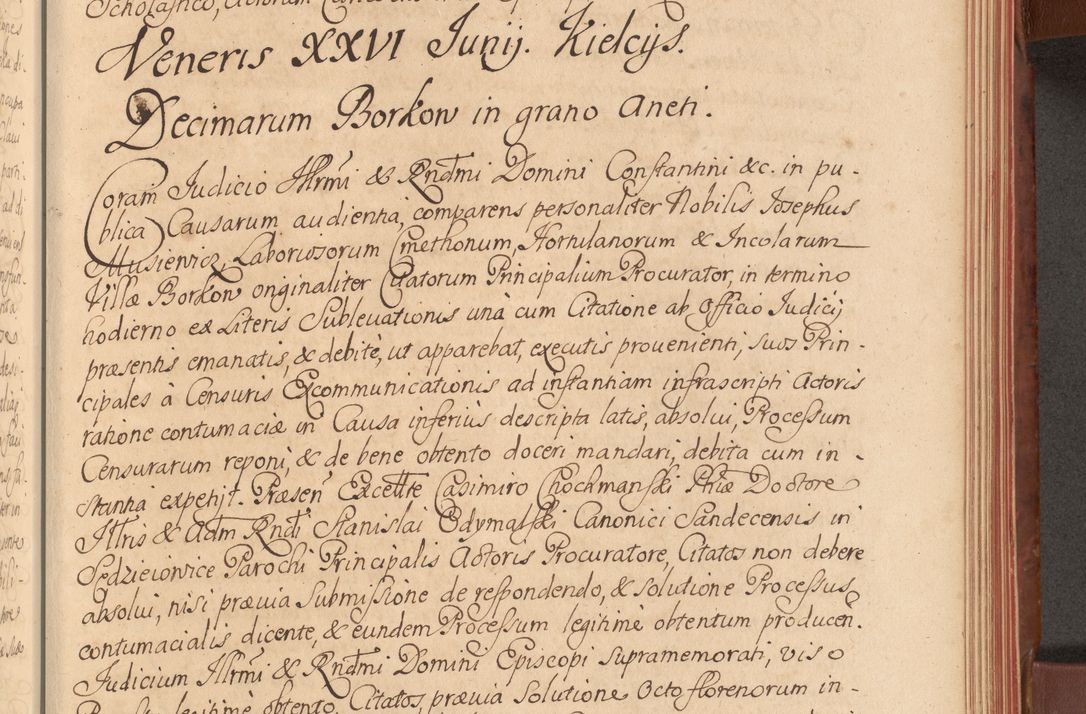 Scholastico, Actorum
Veneris XXVI Junij. Kielcijs.
Decimarum Borkow in grano Aneti.
Coram Judicio Illrmi & Rndmi Domini Constantini &c. in pu-
blica Causarum audientia, comparens personaliter Nobilis Josephus
Musiewicz, Laboriosorum Cmethonum, Hortulanorum & Incolarum
Villæ Borkow originaliter Citatorum Principalium Procurator, in termino
hodierno ex Literis Sublevationis unà cum Citatione ab Officio Judicij
præsentis emanatis, & debitè, ut apparebat, executis provenienti, suos Prin-
cipales à Censuris Excommunicationis ad instantiam infrascripti Actoris
ratione contumaciæ in Causa inferiùs descripta latis, absolvi, Processum
Censurarum reponi, & de bene obtento doceri mandari, debita cum in-
stantia expetijt. Præsen Excellte Casimiro Chochmanski Phiæ Doctore
Illris & Adm Rndi Stanislai Odymalski Canonici Sandecensis in
Sędzieiowice Parochi Principalis Actoris Procuratore, Citatos non debere
absolvi, nisi prævia submissione de respondendo, & solutione Processus
contumacialis dicente, & eundem Processum legitimè obtentum producen.
Judicium Illrmi & Rndmi Domini Episcopi supramemorati, viso
legitimè obtento, Citatos, prævia solutione Octo florenorum in-